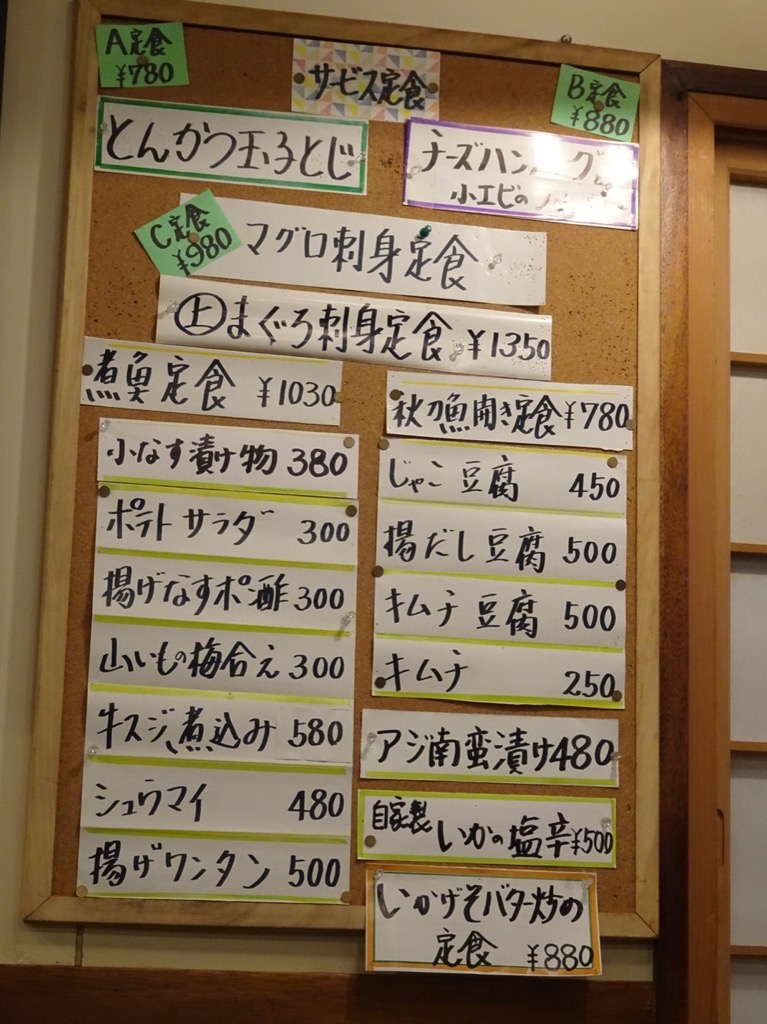 A定食
¥780
サービス定食
B定食
¥880
とんかつ玉子とじ
チーズハン
小エビの
C定食
¥980
マグロ刺身定食
上まぐろ刺身定食 ¥1350
煮魚定食 ¥1030
秋刀魚開き定食¥780
小なす漬け物 380
ポテトサラダ 300
揚げなすポン酢 300
山いもの梅合え 300
牛スジ煮込み 580
シュウマイ 480
揚げワンタン 500
じゃこ豆腐 450
揚だし豆腐 500
キムチ豆腐 500
キムチ 250
アジ南蛮漬け480
自家製 いかの塩辛¥500
いかげそバター炒の
定食 ¥880